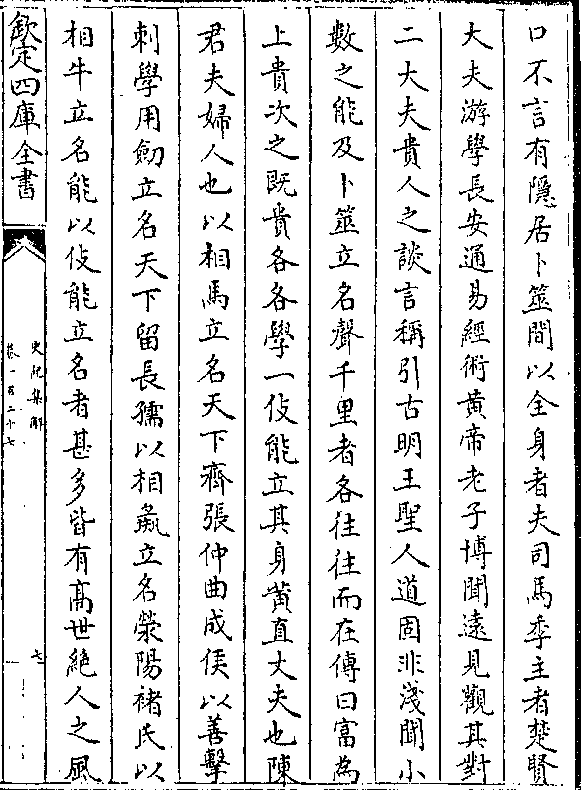 口不言有隱居卜筮間以全身者夫司馬季主者楚賢
大夫游學長安通易經術黄帝老子博聞逺見觀其對
二大夫貴人之談言稱引古明王聖人道固非淺聞小
數之能及卜筮立名聲千里者各往往而在傳曰富為
上貴次之既貴各各學一伎能立其身黄直丈夫也陳
君夫婦人也以相馬立名天下齊張仲曲成侯以善擊
刺學用劒立名天下留長孺以相彘立名滎陽褚氏以
相牛立名能以伎能立名者甚多皆有髙世絶人之風
欽定四庫全書
史記集解
卷一百二十七
七